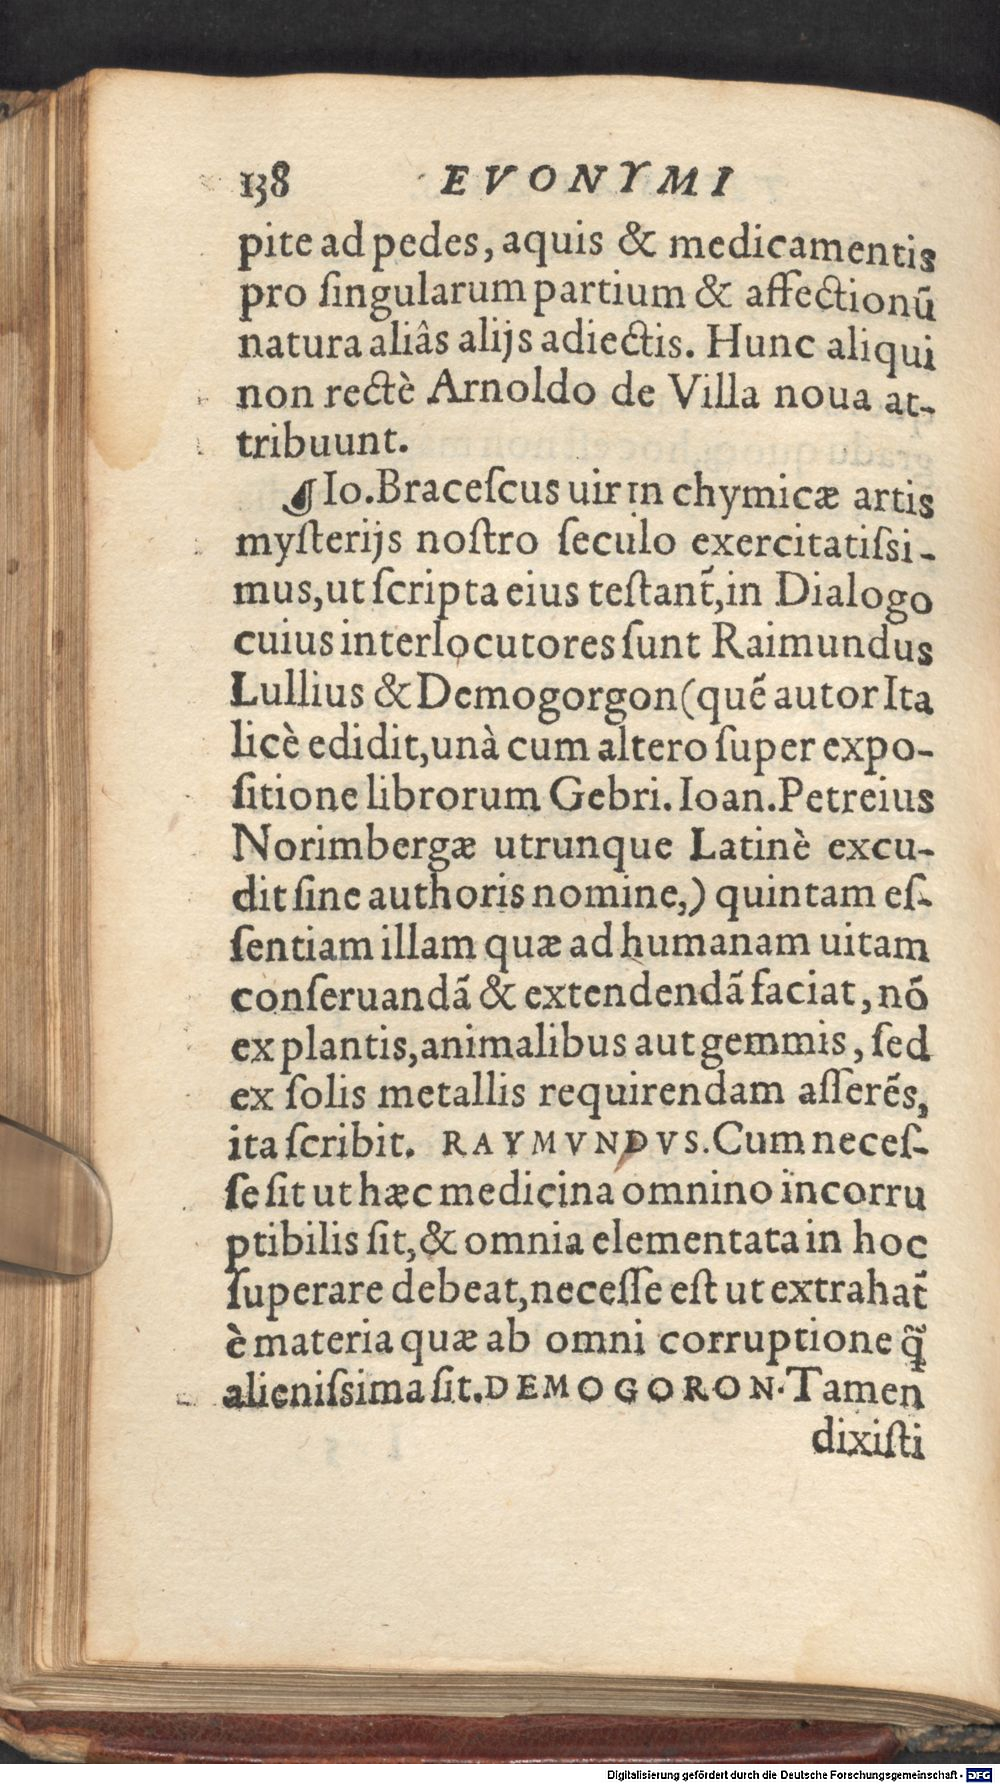 138 EVONYMI
pite ad pedes, aquis & medicamentis
pro ſingularum partium & affectionū
natura aliâs alijs adiectis. Hunc aliqui
non rectè Arnoldo de Villa noua at-
tribuunt.
¶ Io. Braceſcus uir in chymicæ artis
myſterijs noſtro ſeculo exercitatiſsi-
mus, ut ſcripta eius teſtant̃, in Dialogo
cuius interlocutores ſunt Raimundus
Lullius & Demogorgon (quẽ autor Ita
licè edidit, unà cum altero ſuper expo-
ſitione librorum Gebri. Ioan. Petreius
Norimbergæ utrunque Latinè excu-
dit ſine authoris nomine,) quintam eſ-
ſentiam illam quæ ad humanam uitam
conſeruandã & extendendã faciat, nõ
ex plantis, animalibus aut gemmis, ſed
ex ſolis metallis requirendam aſſerẽs,
ita ſcribit. RAYMVNDVS. Cum neceſ-
ſe ſit ut hæc medicina omnino incorru
ptibilis ſit, & omnia elementata in hoc
ſuperare debeat, neceſſe eſt ut extrahat̃
è materia quæ ab omni corruptione q̃
alieniſsima ſit. DEMOGORON. Tamen
dixiſti
Digitalisierung gefördert durch die Deutsche Forschungsgemeinschaft - DFG